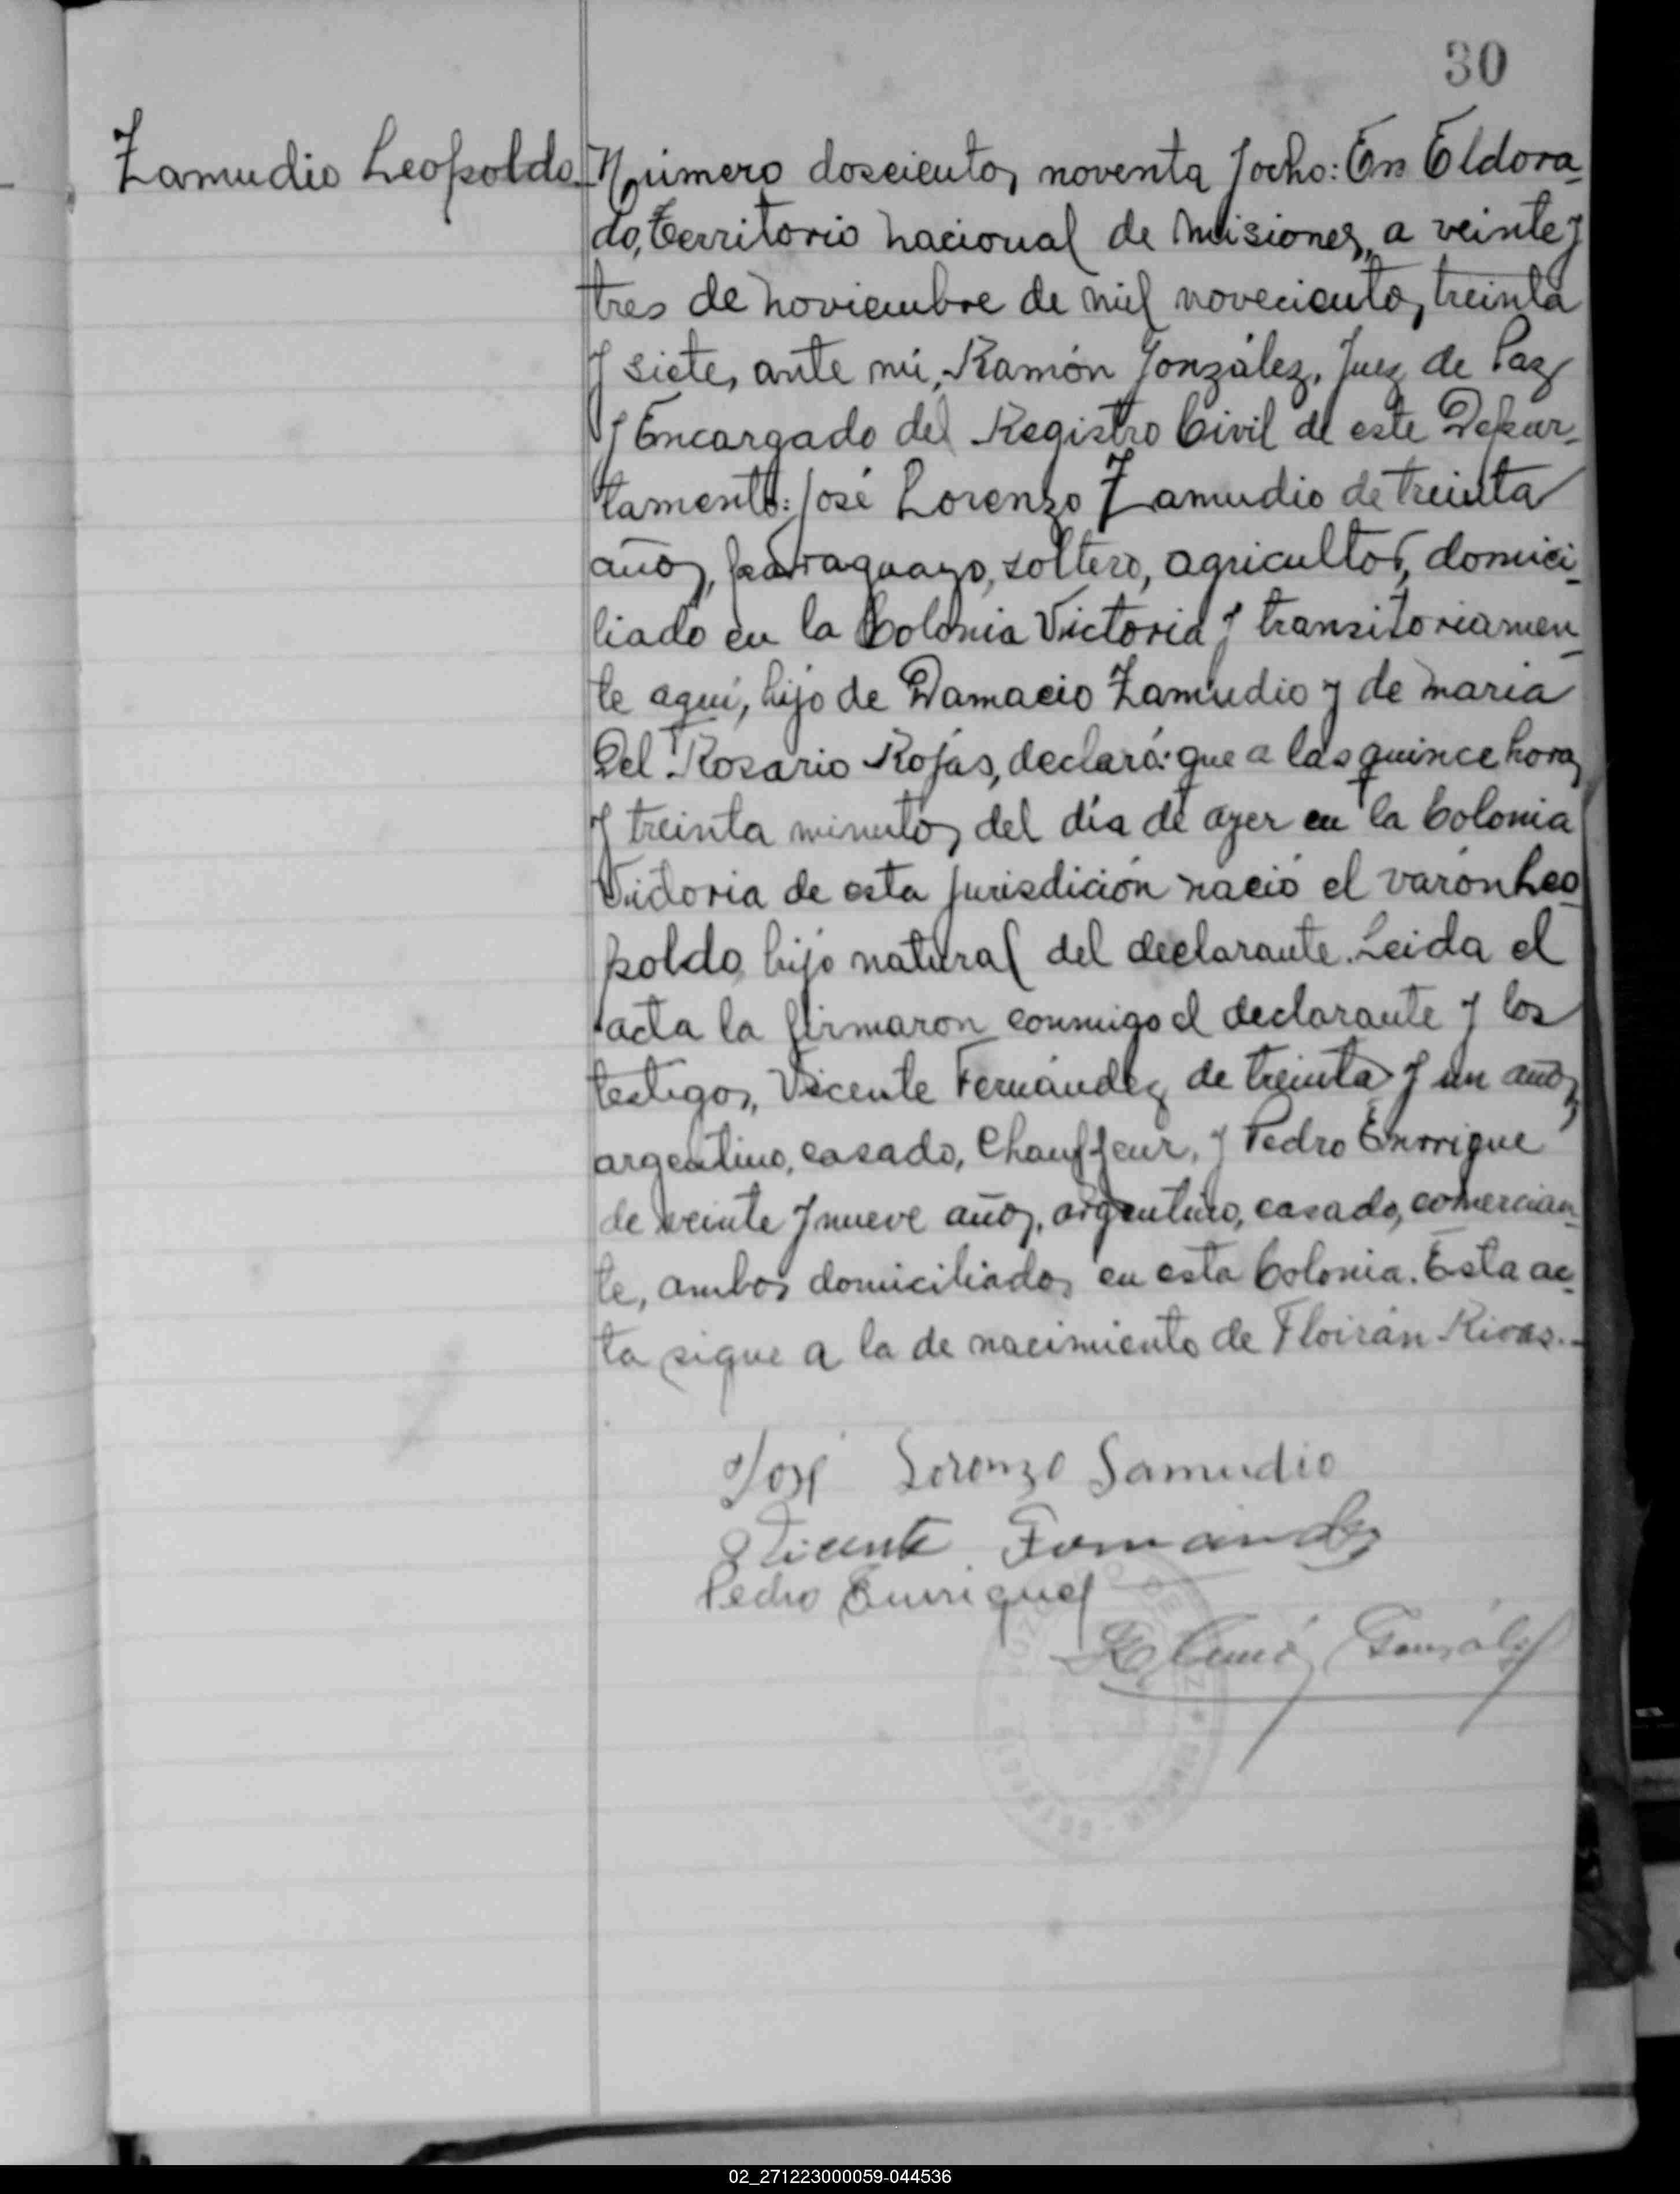 30
Zamudio Leopoldo.
Número doscientos noventa y ocho: En Eldora-
do, territorio nacional de misiones, a veinte y
tres de noviembre de mil novecientos treinta
y siete, ante mí, Ramón González, Juez de Paz
y Encargado del Registro Civil de este Depar-
tamento: José Lorenzo Zamudio de treinta
años, paraguayo, soltero, agricultor, domici-
liado en la Colonia Victoria y transitoriamen-
te aquí, hijo de Damacio Zamudio y de maria
Del Rosario Rojas, declaró: que a las quince horas
y treinta minutos del día de ayer en la Colonia
Victoria de esta jurisdición nació el varón Leo-
poldo, hijo natural del declarante. Leida el
acta la firmaron conmigo el declarante y los
testigos, Vicente Fernández de treinta y un años,
argentino, casado, Chauffeur, y Pedro Enrrique
de veinte y nueve años, argentino, casado, comercian-
te, ambos domiciliados en esta Colonia. Esta ac-
ta sigue a la de nacimiento de Floirán Rivas.-
José Lorenzo Samudio
Vicente Fernández
Pedro Enrriquez
Ramón González
02_271223000059-044536